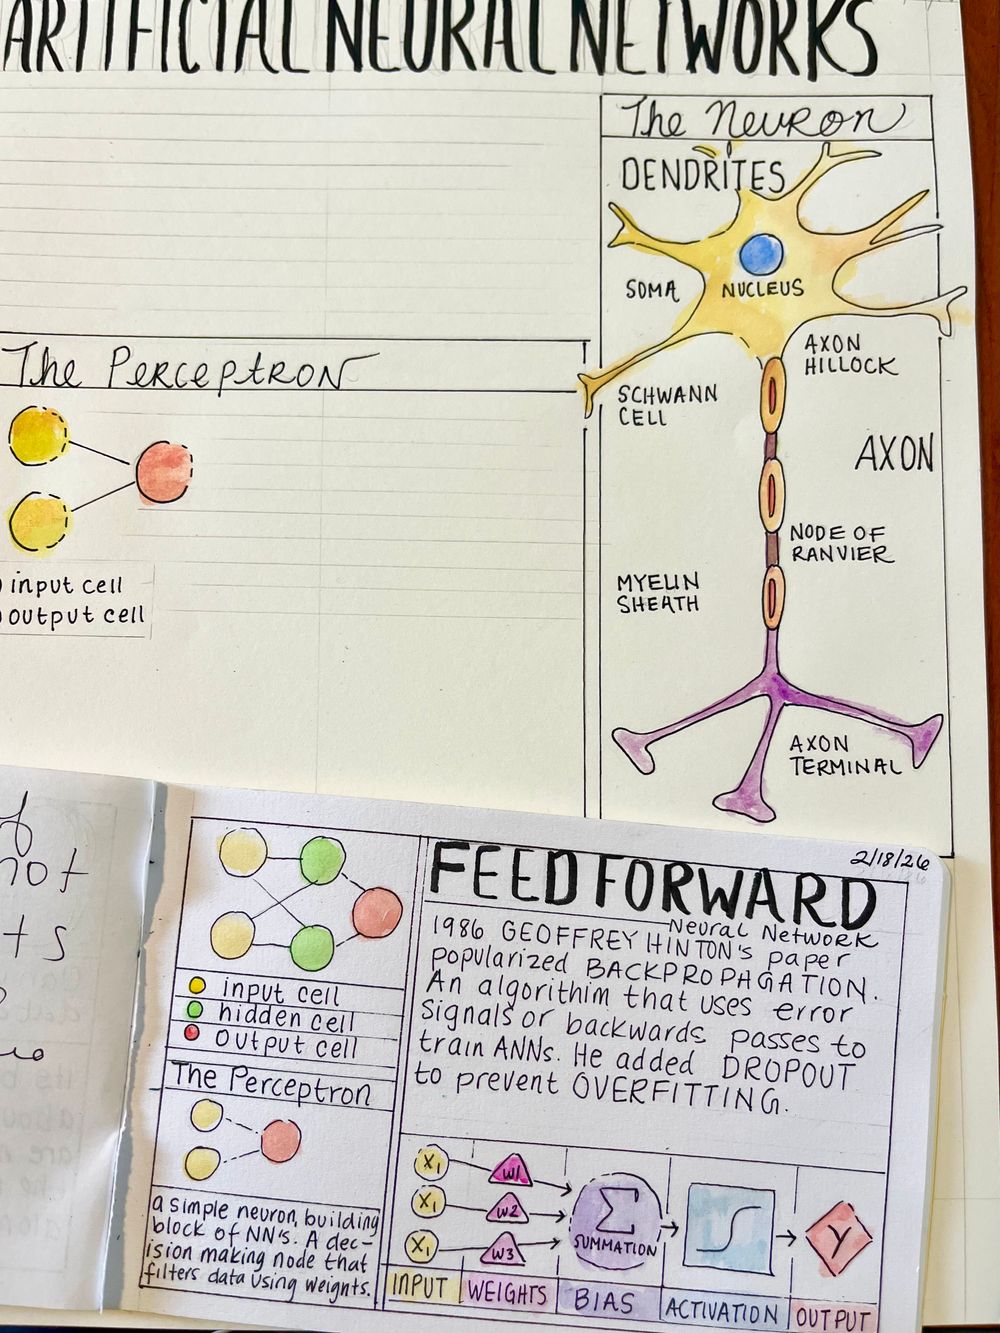 ARTIFICIAL NEURAL NETWORKS
The Neuron
DENDRITES
SOMA
NUCLEUS
AXON
HILLOCK
SCHWANN
CELL
AXON
NODE OF
RANVIER
MYELIN
SHEATH
AXON
TERMINAL
The Perceptron
input cell
output cell
not
2/18/26
FEED FORWARD
Neural Network
1986 GEOFFREY HINTON's paper
popularized BACKPROPAGATION.
An algorithim that uses error
signals or backwards passes to
train ANNs. He added DROPOUT
to prevent OVERFITTING.
input cell
hidden cell
output cell
The Perceptron
a simple neuron, building
block of NN's. A dec-
ision making node that
filters data using weights.
X1
W1
X1
W2
X1
W3
Σ
SUMMATION
Y
INPUT
WEIGHTS
BIAS
ACTIVATION
OUTPUT